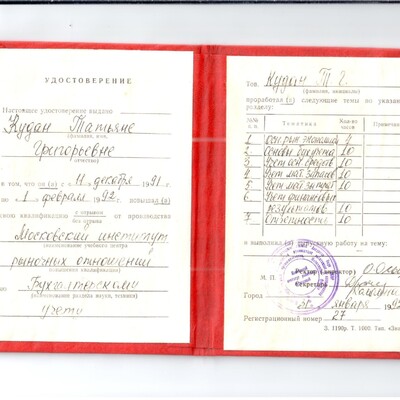 УДОСТОВЕРЕНИЕ
Настоящее удостоверение выдано
Кудан Татьяне
(фамилия, имя,
Григорьевне
отчество)
в том, что он (а) с 11 декабря 1991 г.
по 1 февраля 1992 г. повышал (а)
свою квалификацию с отрывом от производства
в Московский институт
(наименование учебного центра
рыночных отношений
повышения квалификации)
по Бухгалтерскому
(наименование раздела науки, техники)
учету
Тов. Кудан Т. Г.
(фамилия, инициалы)
проработал (а) следующие темы по указанному
разделу:
№№ п. п. Тематика Кол-во часов Примечание
1 Осн рын экономики
2 Основы бухучета 10
3 Учет осн средств 10
4 Учет мат. запасов 10
5 Учет мат. затрат 10
6 Учет финансовых
результатов 10
7 Отчетность 10
и выполнил (а) выпускную работу на тему:
М. П.
Ректор (директор)
Секретарь
Город
января 1992
Регистрационный номер 27
З. 1190р. Т. 1000 Тип.